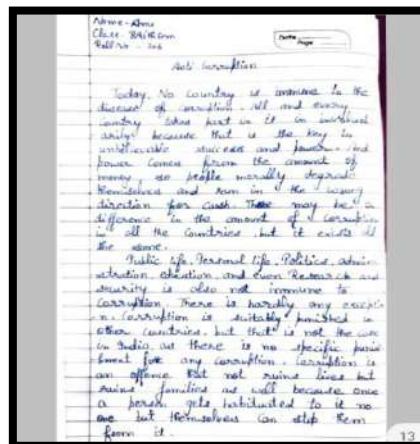 Name - Annu
Class - BA
Roll No -
Date
Page
Anti Corruption
Today, No country is immune in the
disease of corruption. All and every
country takes part in it in
because that is the key in
unbelievable success and power. And
power comes from the amount of
money, so people morally degrade
themselves and run in the wrong
direction for cash. There may be a
difference in the amount of corruption
in all the countries, but it exists all
the same.
Public life, Personal life, Politics, admin-
stration, education, and even Research and
security is also not immune to
corruption. There is hardly any excep
n. Corruption is suitably punished in
other countries, but that is not the case
in India, as there is no specific punis
hment for any corruption. Corruption is
an offence that not ruins lives but
ruins families as well because once
a person gets habituated to it no
one but themselves can stop them
from it.
13